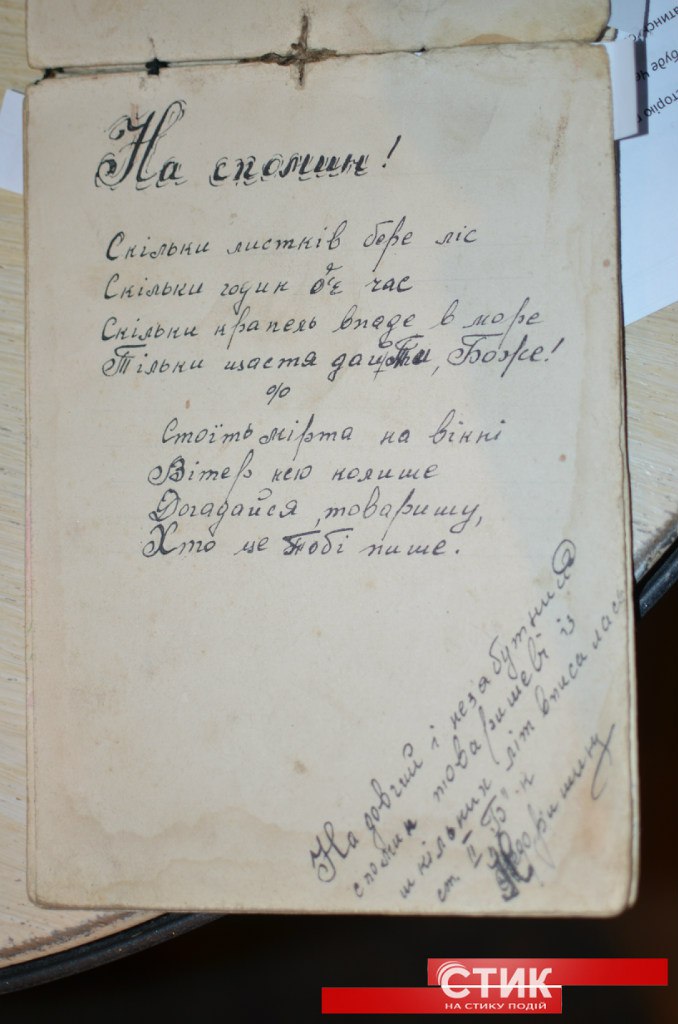 На спомин!
Скільки листків бере ліс
Скільки годин б'є час
Скільки крапель впаде в море
Тільки щастя дай Ти, Боже!
%
Стоїть мірта на вікні
Вітер нею колише
Догадайся, товаришу,
Хто це Тобі пише.
На довгий і незабутний
спомин товаришеві із
шкільних літ вписалась
ст. II "Б" к
СТИК
НА СТИКУ ПОДІЙ